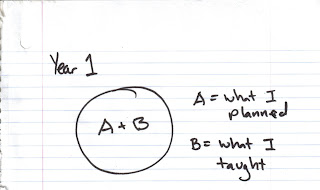 Year 1
A + B
A = what I
planned
B = what I
taught